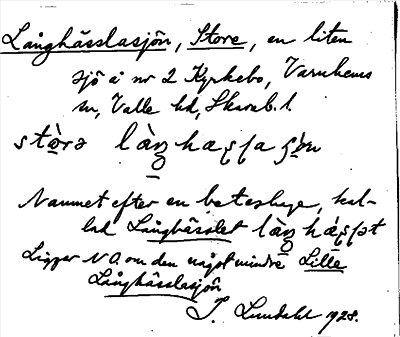 Långhässlasjön, Store, en liten
sjö å nr 2 Kyrkebo, Varnhems
sn, Valle hd, Skarab. l.
Namnet efter en beteshage, kal-
lad Långhässlet
Ligger N O om den något mindre Lille
Långhässlasjön
J. Lundahl 1928.